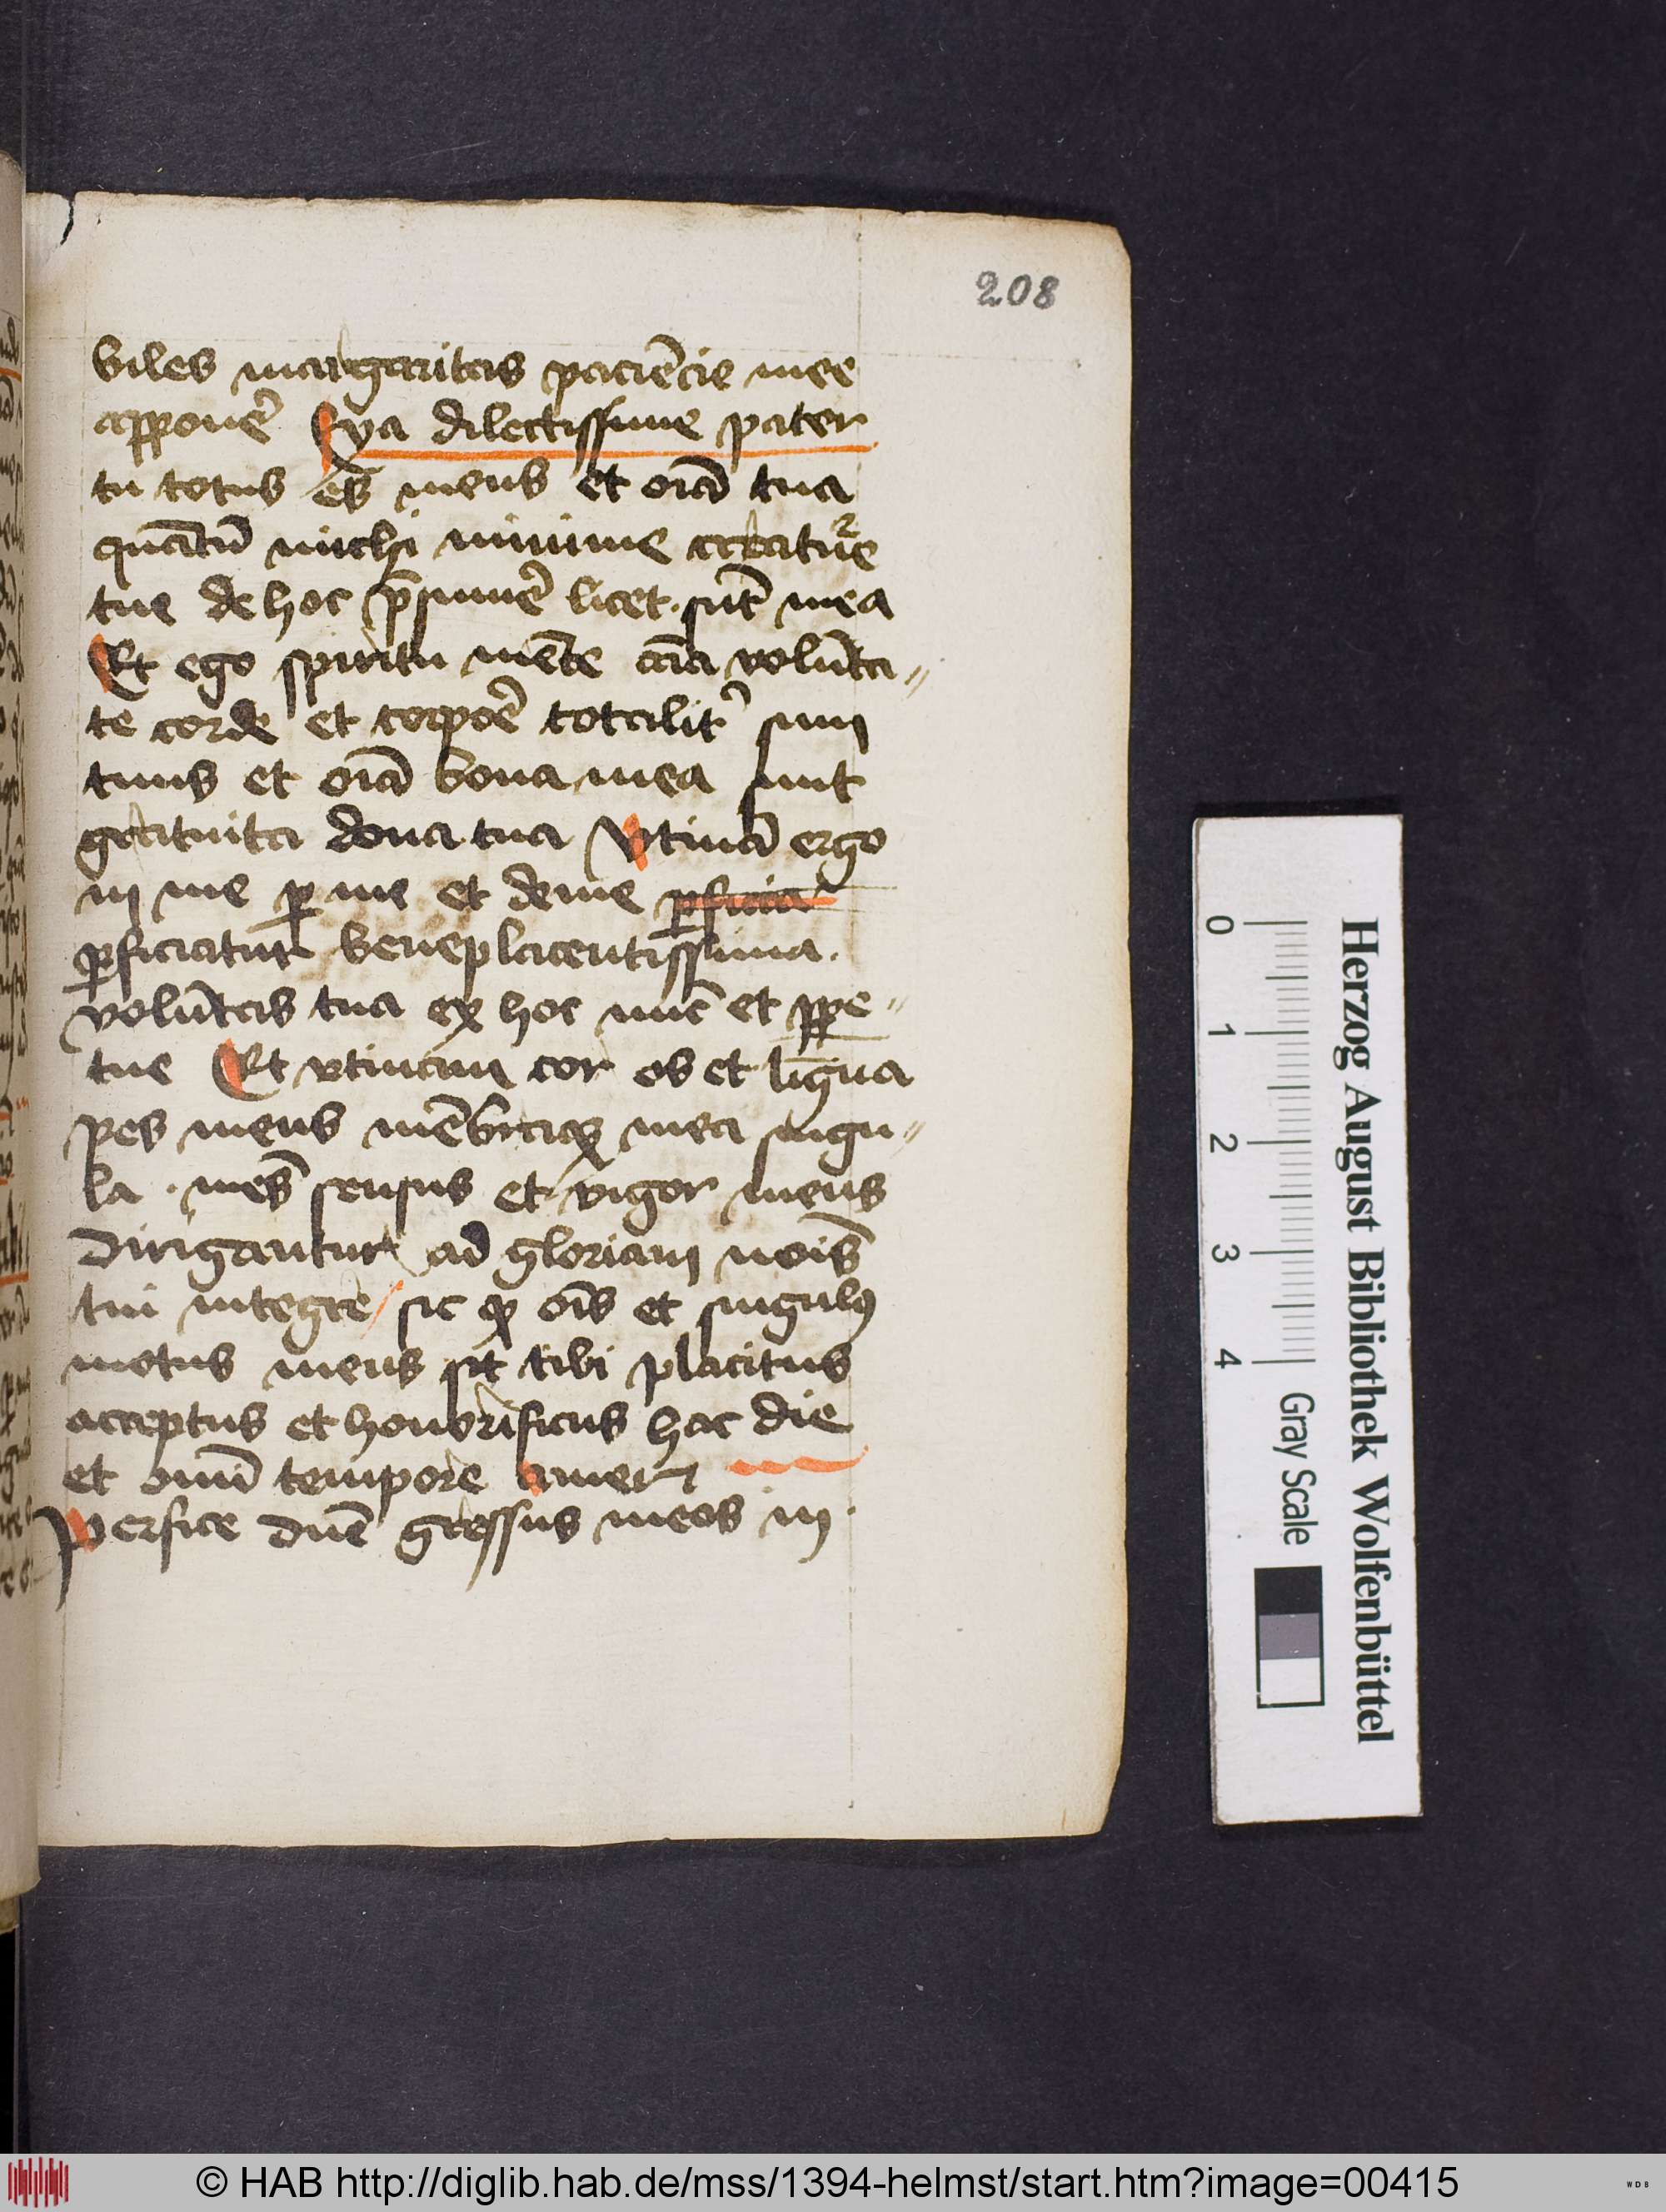 208
biles margaritas paciēcie mee
apponē Eya dilectissime pater
tu totus es meus et oīa tua
quātū michi minime creature
tue de hoc p̄sumē licet. sūt mea
Et ego spiritu mēte aīa volūta〃
te corde et corpoē totalit᾽ sum
tuus et oīa bona mea sunt
gratuita dona tua Vtinā ergo
in me ꝑ me et de me ꝑficia
ꝑficiatur beneplacentissima.
volūtas tua ex hoc nūc et ꝑpe〃
tue Et vtinam cor os et līgua
pes meus mēbraqꝫ mea singu〃
la . mēs sensus et vigor meus
dirigantur ad gloriam noīs
tui integre / sic ꝙ oīs et singulꝰ
motus meus sit tibi placitus
acceptus et honorificus hac die
et omī tempore amen
Perfice dn̄e gressus meos in
Herzog August Bibliothek Wolfenbüttel
0 1 2 3 4 Gray Scale
© HAB http://diglib.hab.de/mss/1394-helmst/start.htm?image=00415
WDB